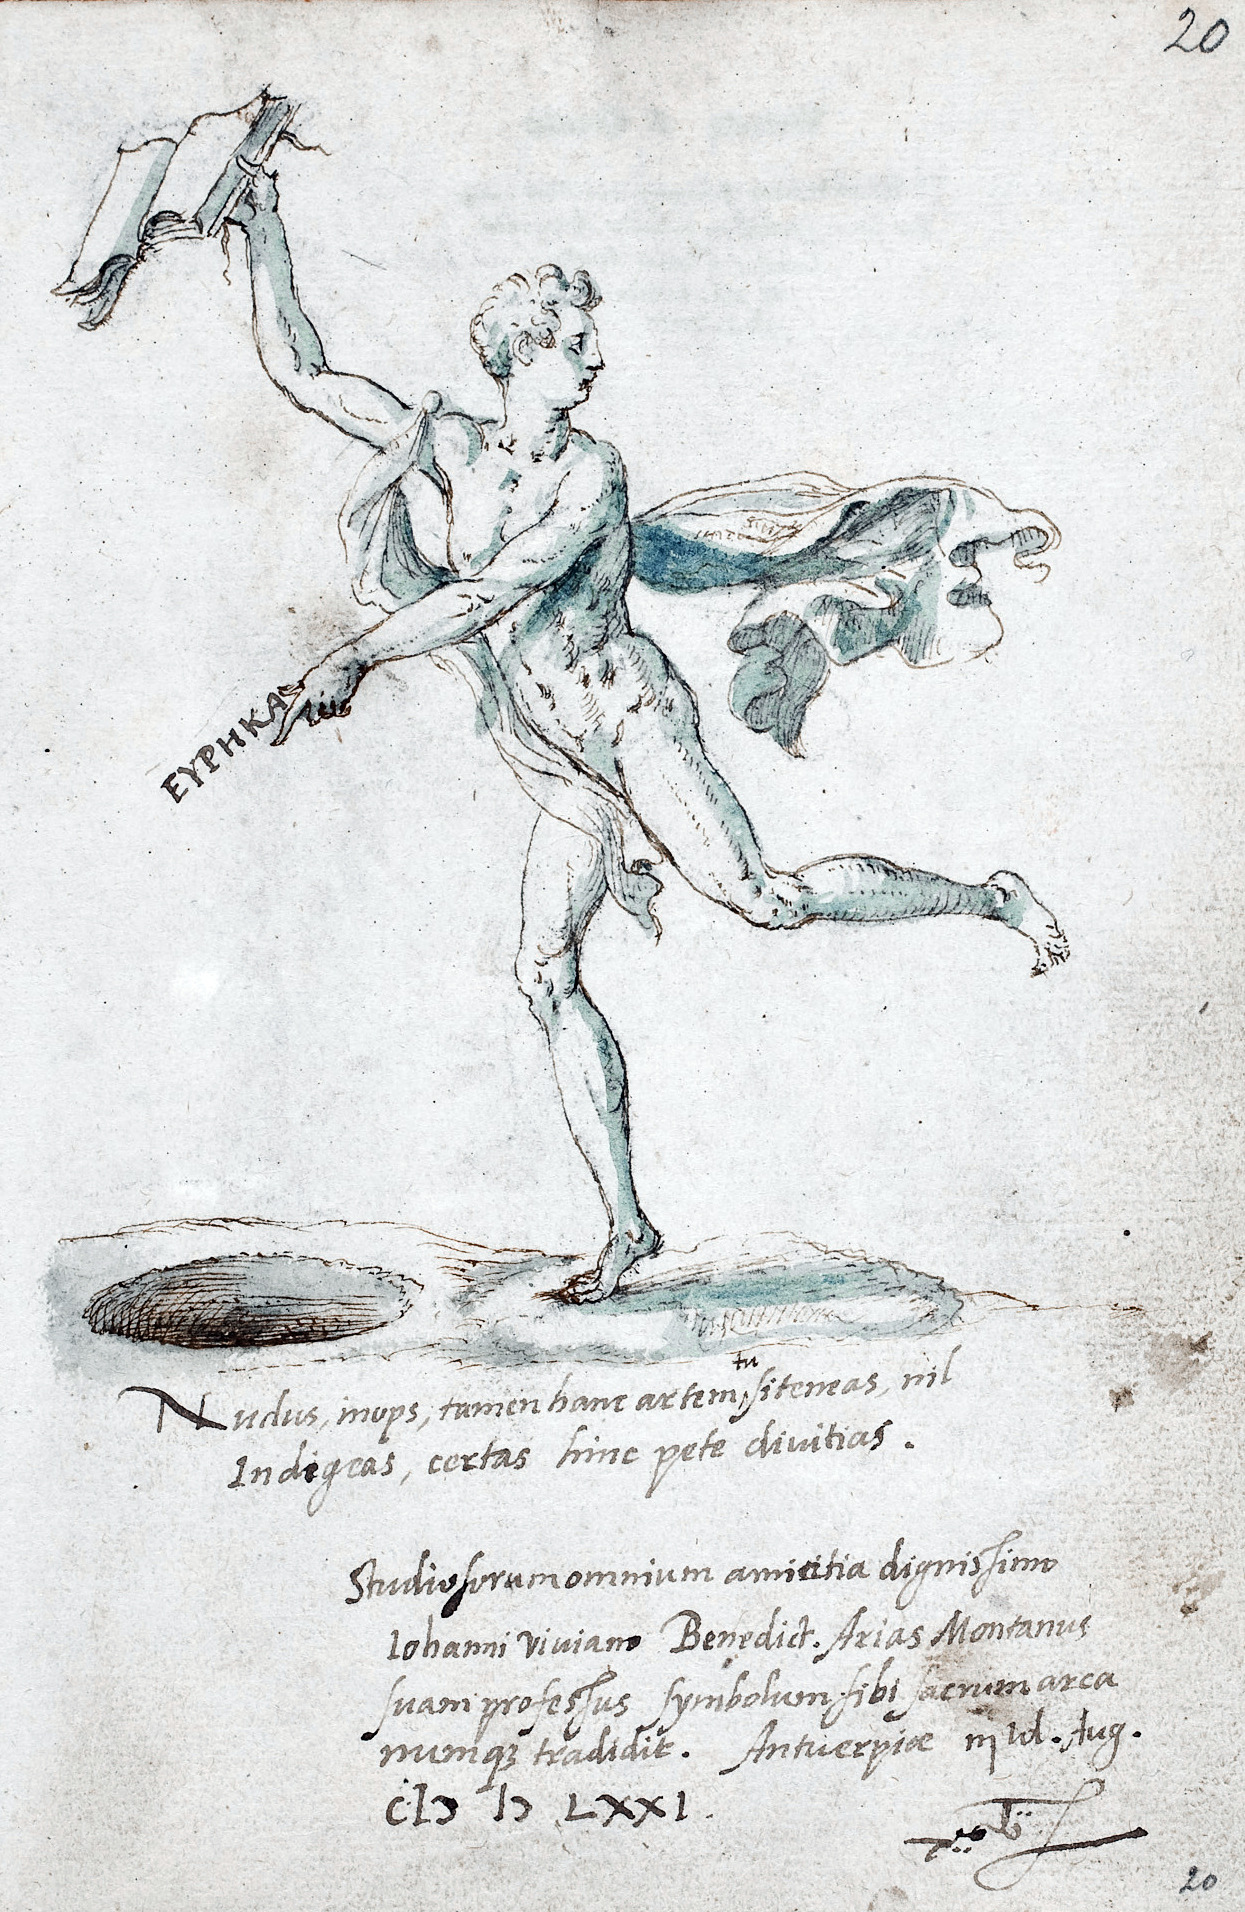 20
ΕΥΡΗΚΑ
Nudus, inops, tamen hanc artem tu si teneas, nil
Indigeas, certas hinc pete divitias.
Studiosorum omnium amicitia dignissimo
Iohanni Viviano Benedict. Arias Montanus
suam professus symbolum sibi sacrum arca
numq; tradidit. Antverpiæ iij Id. Aug.
CIↃ IↃ LXXI.
20